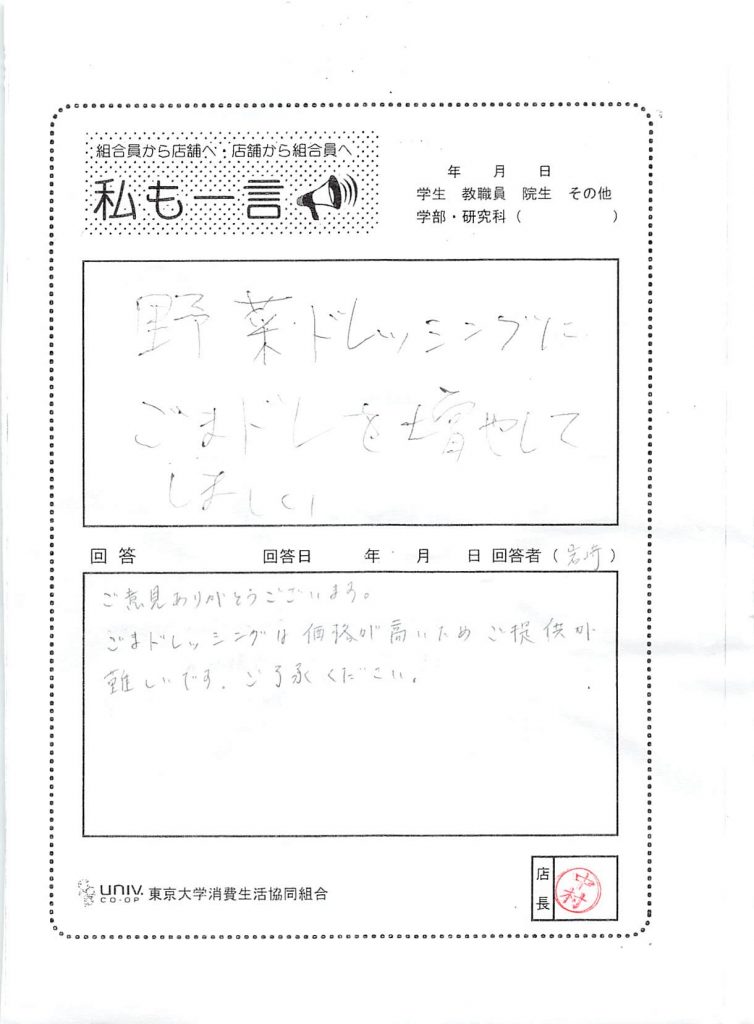 組合員から店舗へ・店舗から組合員へ
私も一言
年 月 日
学生 教職員 院生 その他
学部・研究科（ ）
野菜ドレッシングに
ごまドレを増やして
しましい
回答 回答日 年 月 日 回答者（岩崎）
ご意見ありがとうございます。
ごまドレッシングは価格が高いためご提供が
難しいです。ご了承ください。
UNIV.
CO-OP
東京大学消費生活協同組合
店長
中村